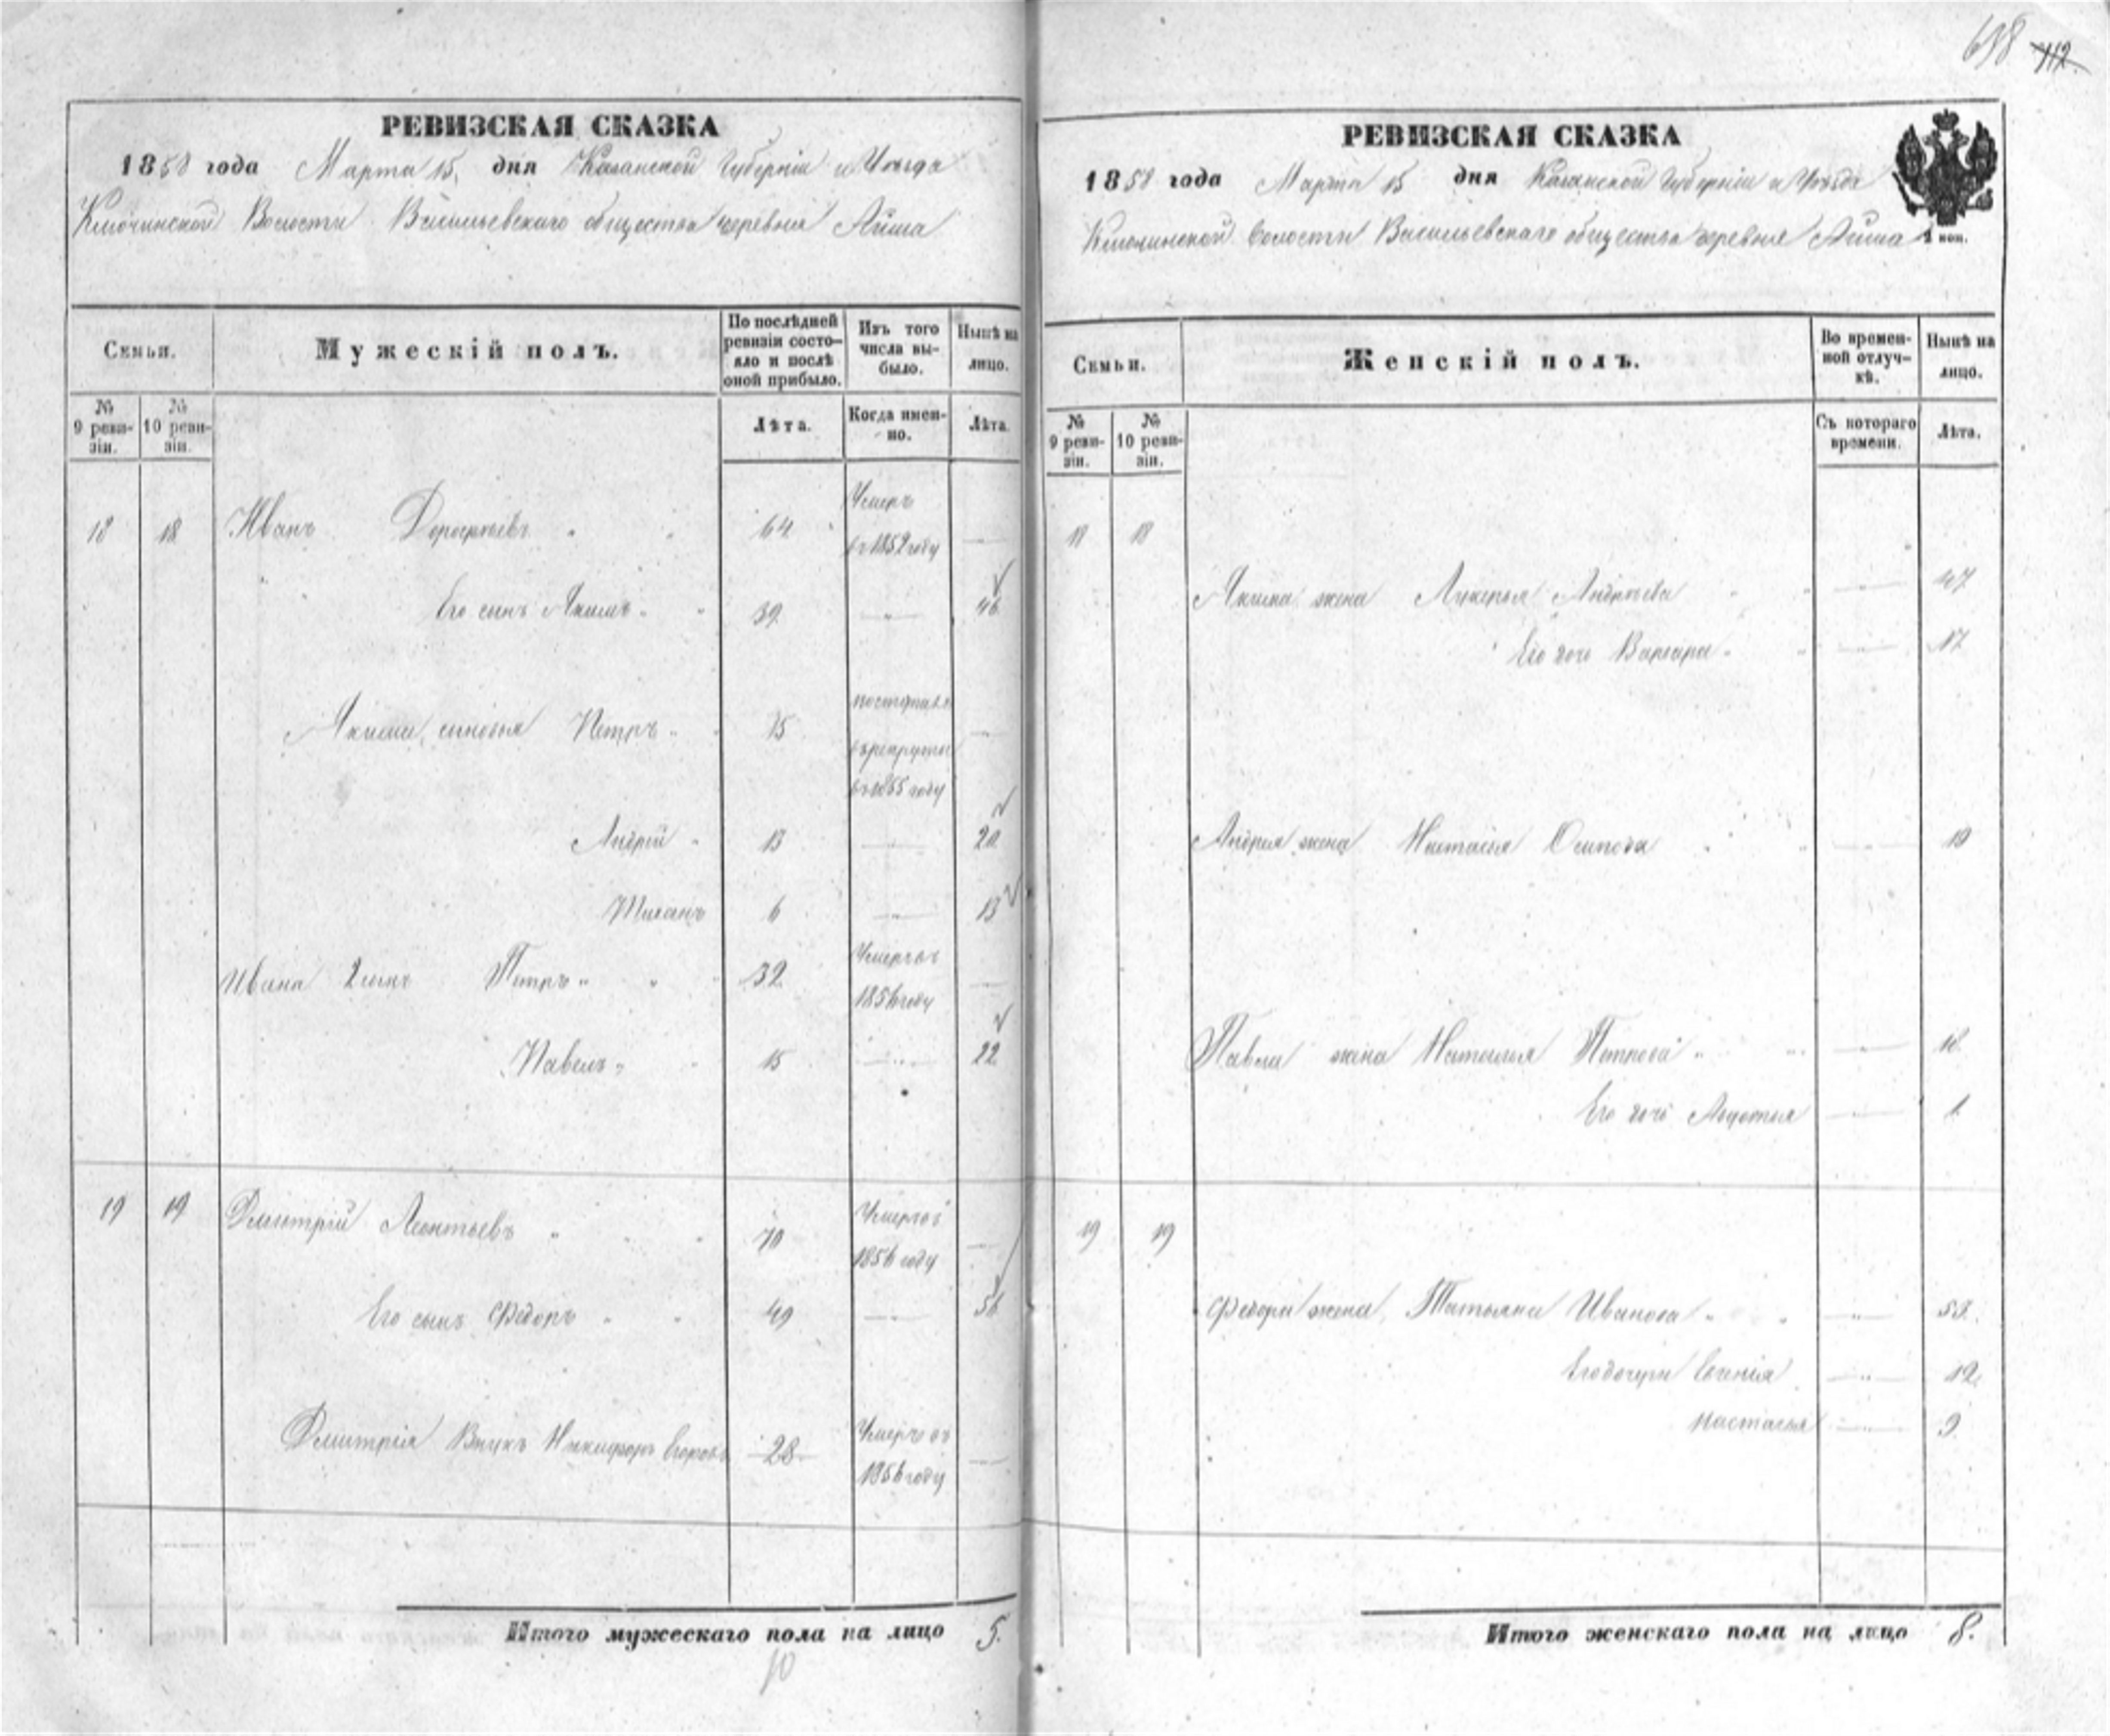 698 112.
РЕВИЗСКАЯ СКАЗКА
1858 года Марта 15 дня Казанской Губерніи и Уѣзда
Ключинской Волости Васильевскаго общества деревни Айша
Семьи.
Мужескій полъ.
По послѣдней ревизіи состо-
яло и послѣ
оной прибыло.
Изъ того
числа вы-
было.
Нынѣ на
лицо.
№
9 реви-
зіи.
№
10 реви-
зіи.
Лѣта.
Когда имен-
но.
Лѣта.
18 18 Иванъ 64 Умеръ
въ 1852 году
Его сынъ Якимъ 39 46
Якима сыновья Петръ 15 поступилъ
въ рекруты
въ 1855 году
Андрей 13 20
Тихонъ 6 13
Ивана 2 сынъ Петръ 32 Умеръ въ
1856 году
Павелъ 15 22
19 19 Дмитрій Леонтьевъ 70 Умеръ въ
1856 году
Его сынъ Федоръ 49 56
Дмитрія Внукъ Никифоръ Егоровъ 28 Умеръ въ
1856 году
Итого мужескаго пола на лицо 5.
10
РЕВИЗСКАЯ СКАЗКА
1858 года Марта 15 дня Казанской Губерніи и Уѣзда
Ключинской Волости Васильевскаго общества деревни Айша
Семьи.
Женскій полъ.
Во времен-
ной отлуч-
кѣ.
Нынѣ на
лицо.
№
9 реви-
зіи.
№
10 реви-
зіи.
Съ котораго
времени.
Лѣта.
18 18
Якима жена Лукерья Андреева 47
Его дочь Варвара 17
Андрея жена Настасья Осипова 19
Павла жена Наталья Петрова
Его дочь 1
19 19
Федора жена Татьяна Иванова 53.
Его дочери Евгенія 12.
Настасья 9
Итого женскаго пола на лицо 8.